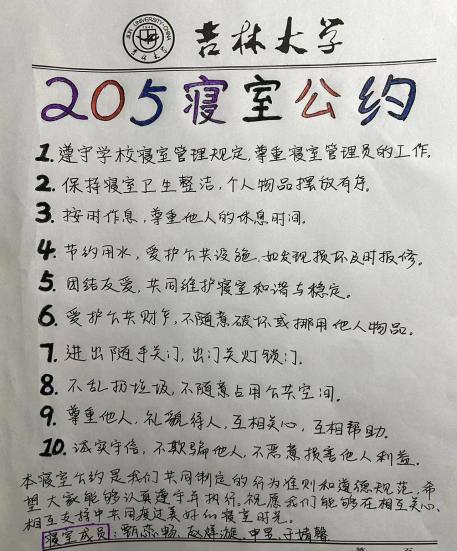 JILIN UNIVERSITY·CHINA
1946
吉林大学
吉林大学
205寝室公约
1. 遵守学校寝室管理规定,尊重寝室管理员的工作.
2. 保持寝室卫生整洁,个人物品摆放有序.
3. 按时作息,尊重他人的休息时间.
4. 节约用水,爱护公共设施.如发现损坏及时报修.
5. 团结友爱,共同维护寝室和谐与稳定。
6. 爱护公共财产,不随意破坏或挪用他人物品。
7. 进出随手关门,出门关灯锁门.
8. 不乱扔垃圾,不随意占用公共空间.
9. 尊重他人,礼貌待人,互相关心,互相帮助.
10. 诚实守信,不欺骗他人,不恶意损害他人利益.
本寝室公约是我们共同制定的行为准则和道德规范.希
望大家能够认真遵守并执行.祝愿我们能够在相互关心、
相互支持中共同度过美好的寝室时光。
寝室成员:甄恋畅